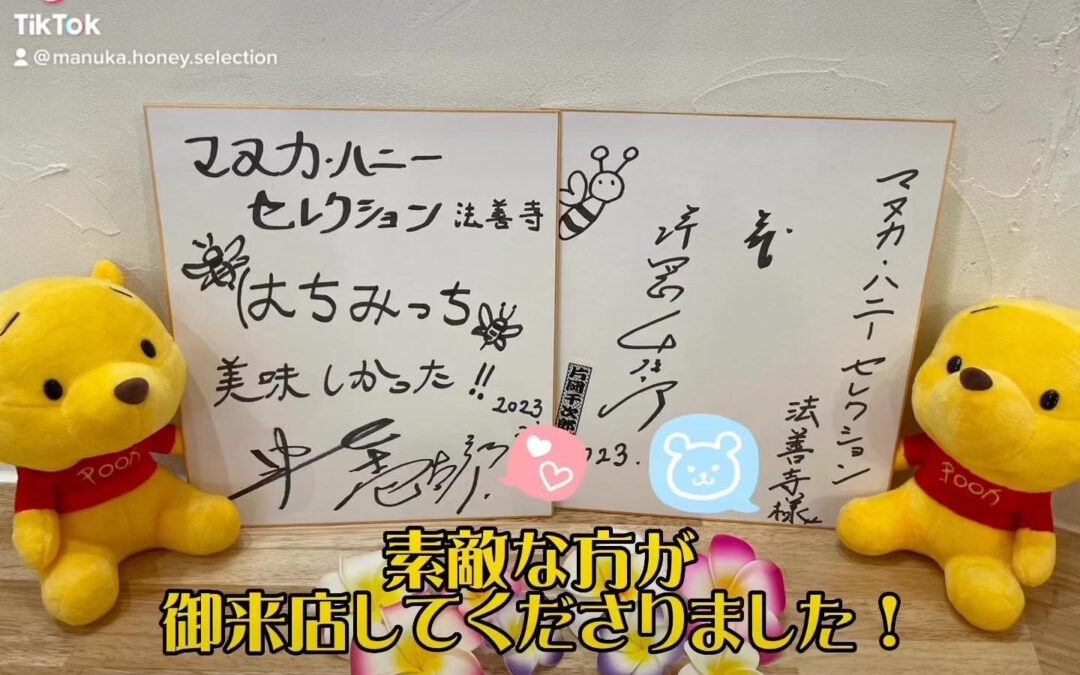 TikTok
@manuka.honey.selection
マヌカ・ハニー
セレクション 法善寺
はちみっち
美味しかった!!
2023
マヌカ・ハニー セレクション
法善寺様
片岡千次郎
2023.
POOH
POOH
素敵な方が
御来店してくださりました!